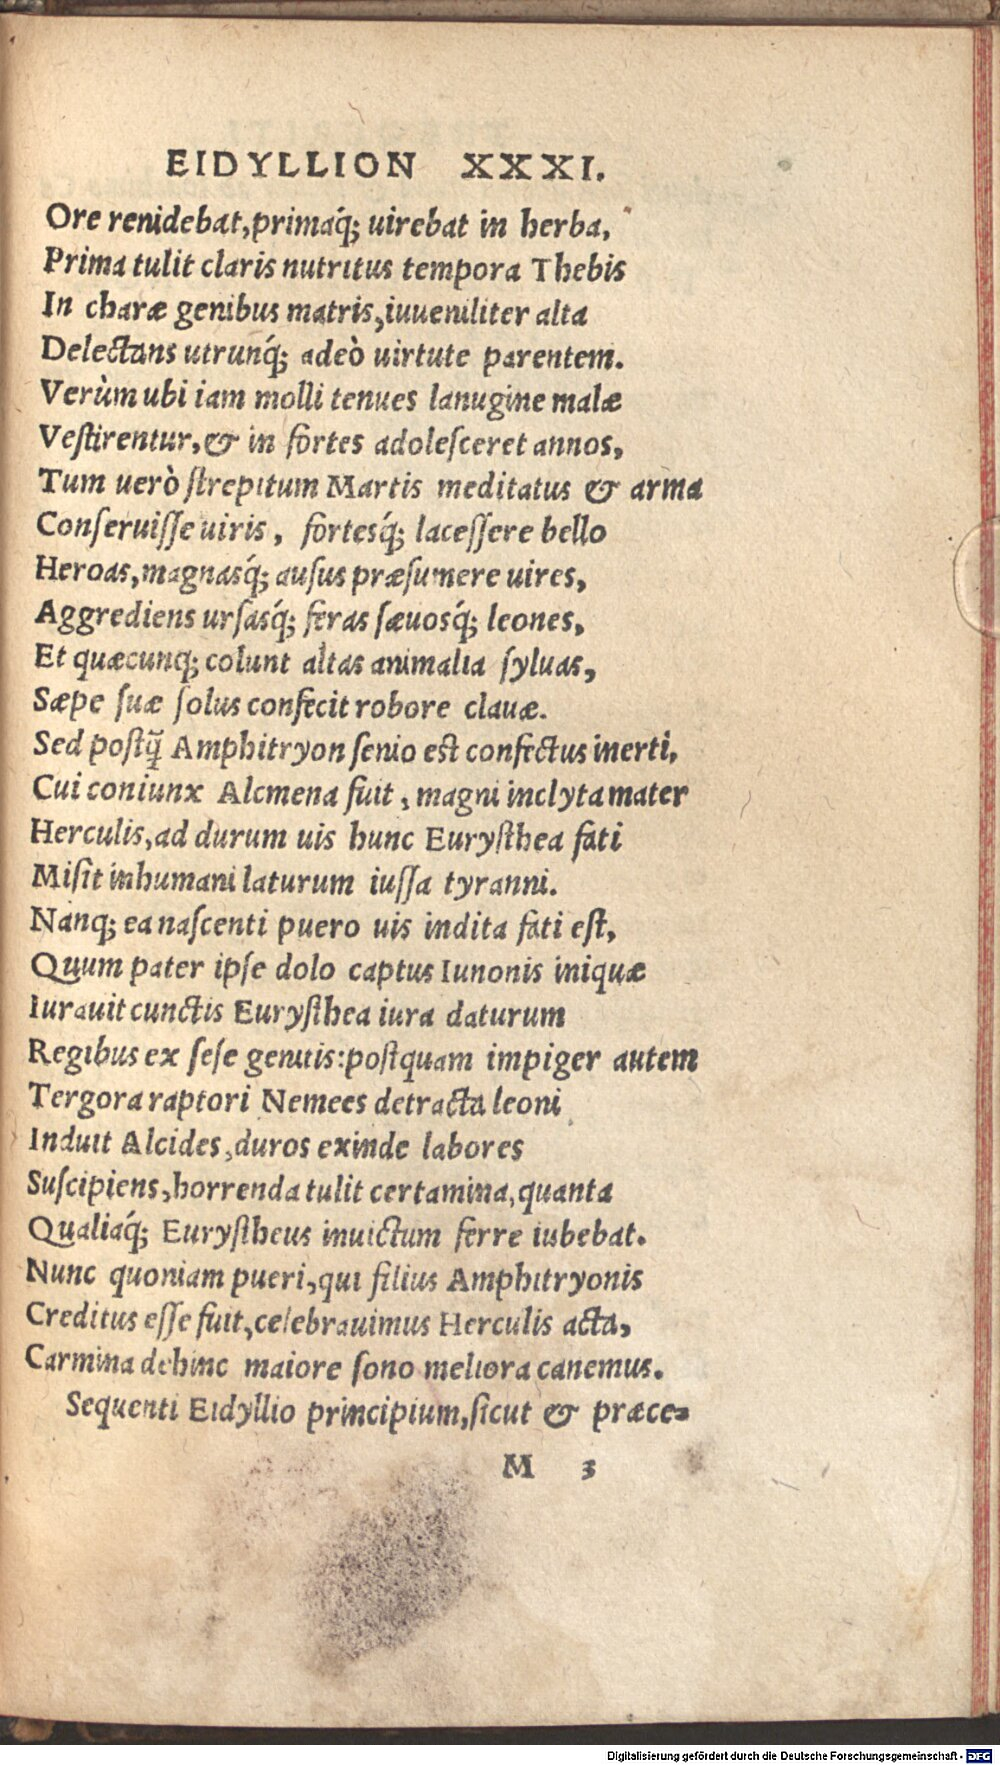 EIDYLLION XXXI.
Ore renidebat, primaq́; uirebat in herba,
Prima tulit claris nutritus tempora Thebis
In charæ genibus matris, iuueniliter alta
Delectans utrunq́; adeò uirtute parentem.
Verùm ubi iam molli tenues lanugine malæ
Veſtirentur, & in fortes adoleſceret annos,
Tum uerò ſtrepitum Martis meditatus & arma
Conſeruiſſe uiris, fortesq́; laceſſere bello
Heroas, magnasq́; auſus præſumere uires,
Aggrediens urſasq́; feras ſæuosq́; leones,
Et quæcunq; colunt altas animalia ſyluas,
Sæpe ſuæ ſolus confecit robore clauæ.
Sed poſtq̃ Amphitryon ſenio eſt confectus inerti,
Cui coniunx Alcmena fuit, magni inclyta mater
Herculis, ad durum uis hunc Euryſthea fati
Miſit inhumani laturum iuſſa tyranni.
Nanq; ea naſcenti puero uis indita fati eſt,
Quum pater ipſe dolo captus Iunonis iniquæ
Iurauit cunctis Euryſthea iura daturum
Regibus ex ſeſe genitis: poſtquam impiger autem
Tergora raptori Nemees detracta leoni
Induit Alcides, duros exinde labores
Suſcipiens, horrenda tulit certamina, quanta
Qualiaq́; Euryſtheus inuictum ferre iubebat.
Nunc quoniam pueri, qui filius Amphitryonis
Creditus eſſe fuit, celebrauimus Herculis acta,
Carmina dehinc maiore ſono meliora canemus.
Sequenti Eidyllio principium, ſicut & præce-
M 3
Digitalisierung gefördert durch die Deutsche Forschungsgemeinschaft - DFG